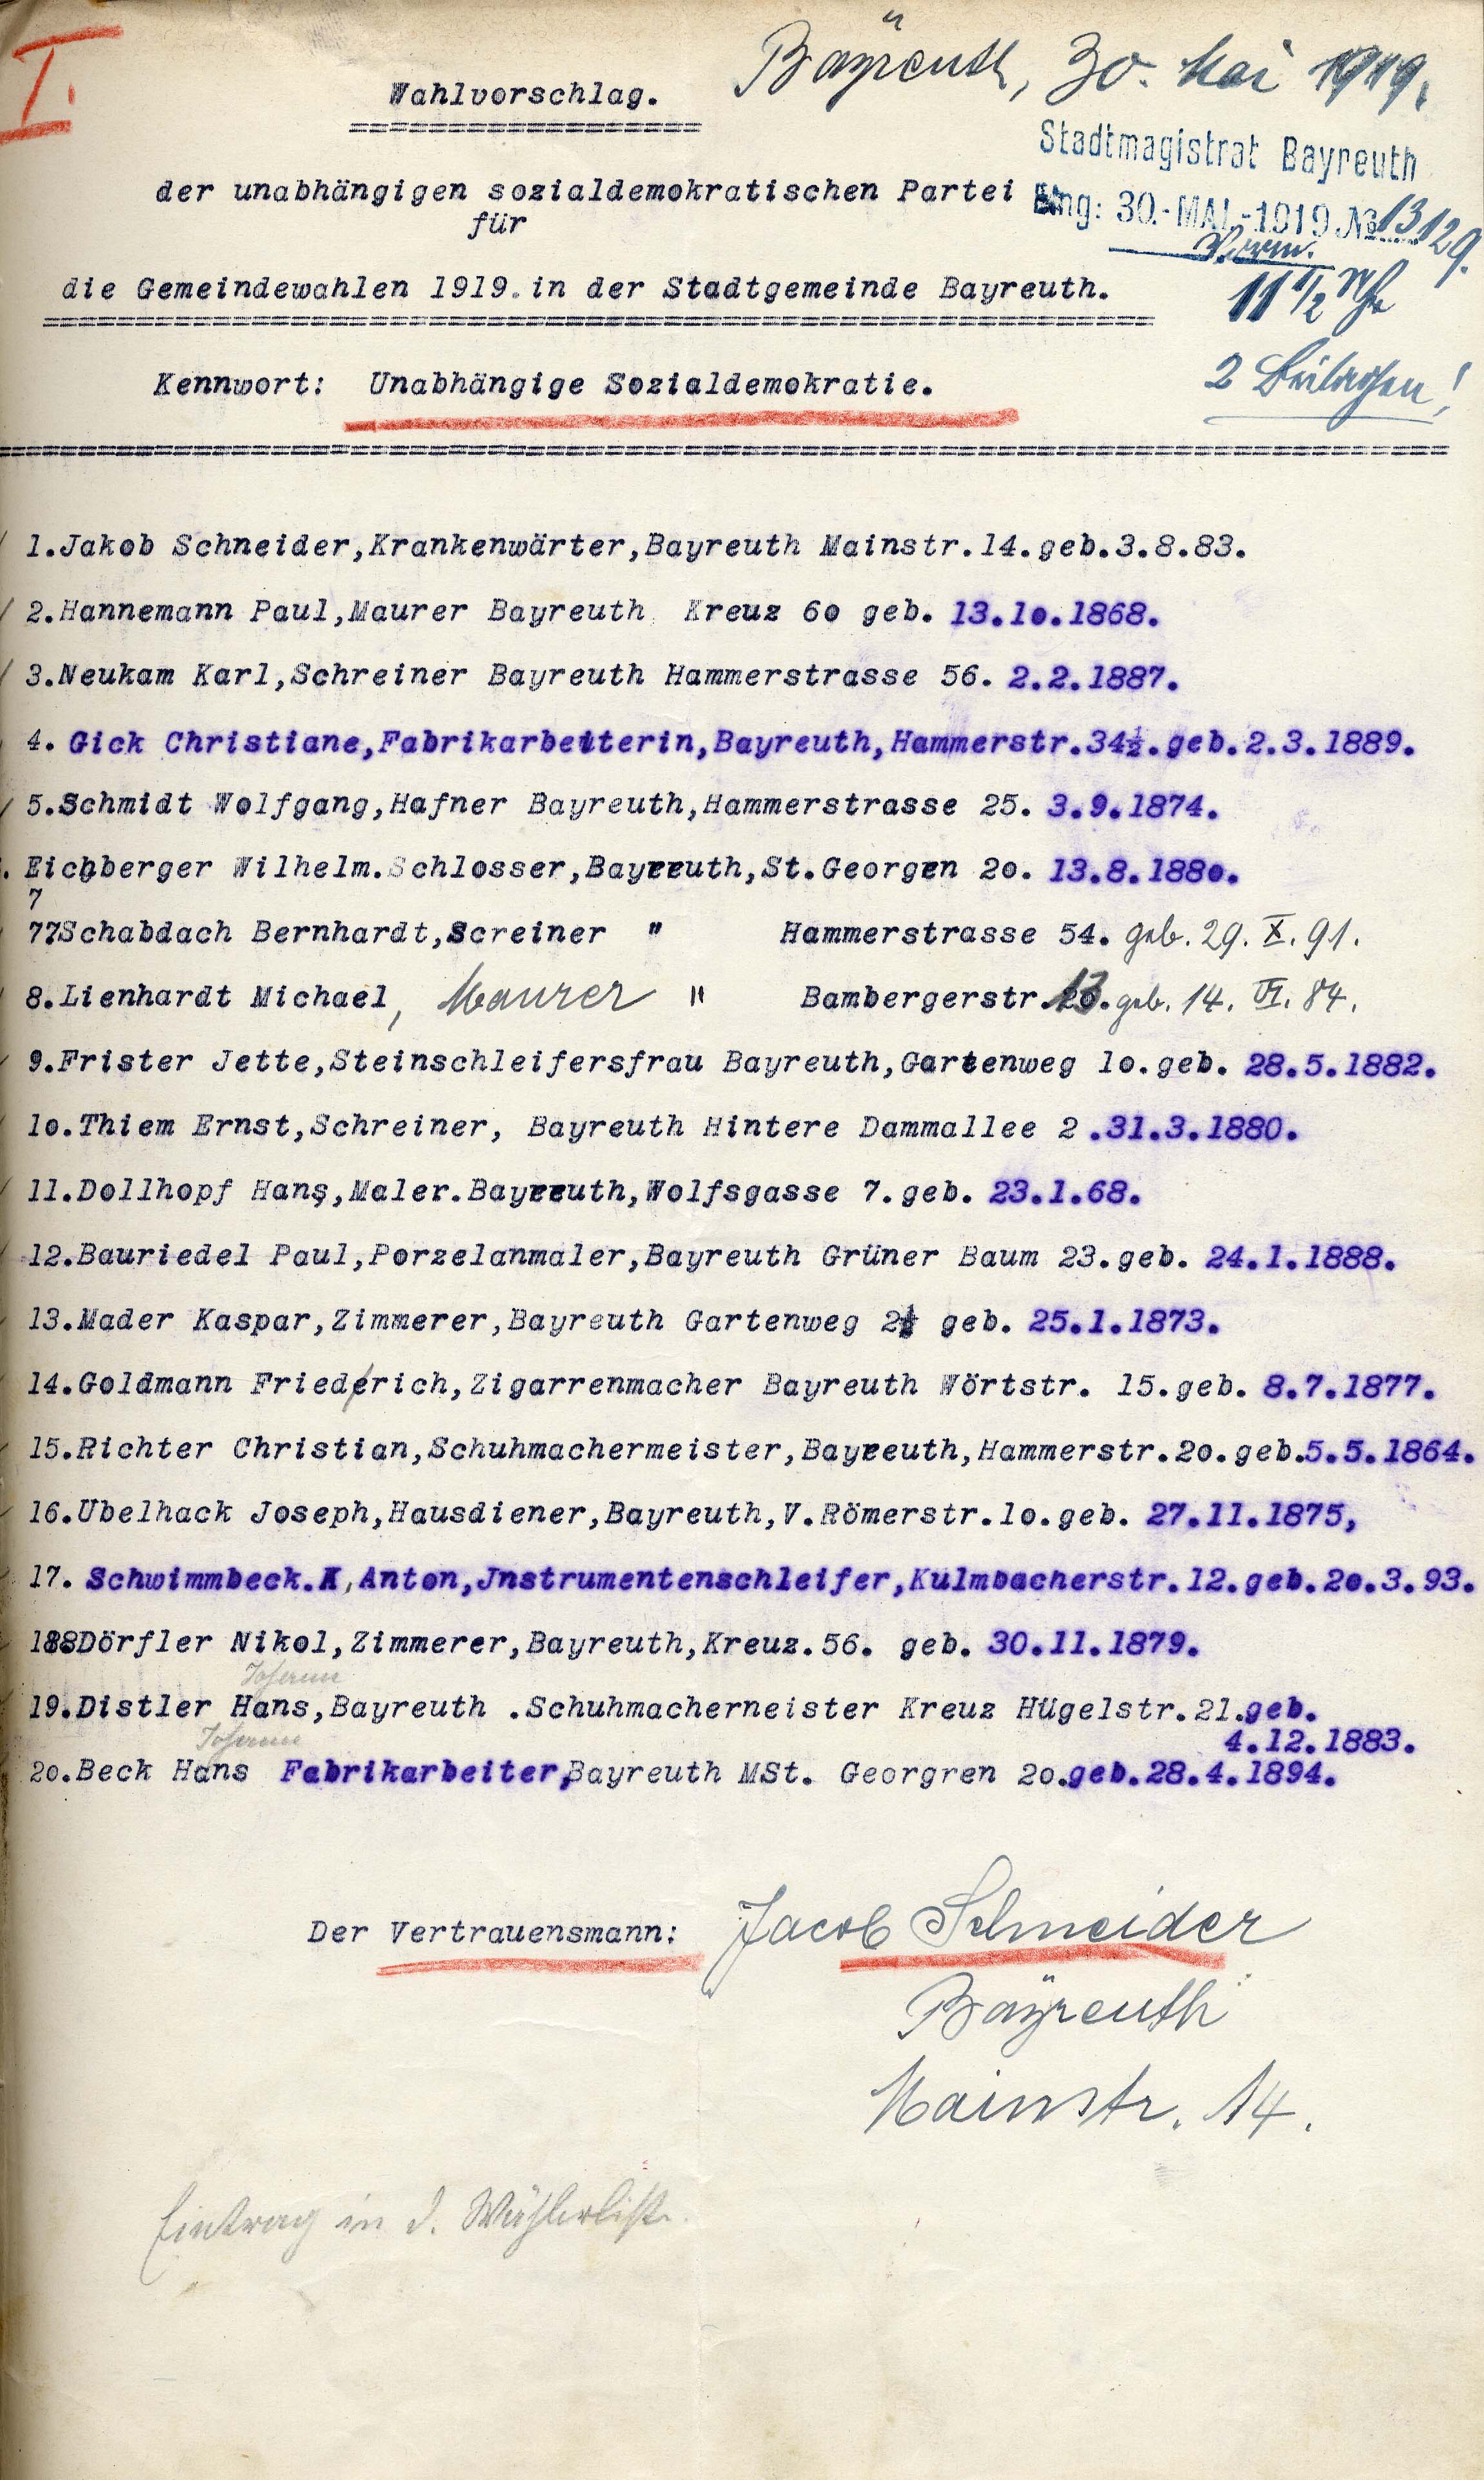 I.
Bayreuth, 30. Mai 1919.
Wahlvorschlag.
Stadtmagistrat Bayreuth
der unabhängigen sozialdemokratischen Partei
Eing: 30.-MAI.-1919 № 13129.
für
Vorm.
11 1/2 Uhr
die Gemeindewahlen 1919.in der Stadtgemeinde Bayreuth.
2 Beilagen!
Kennwort: Unabhängige Sozialdemokratie.
1.Jakob Schneider,Krankenwärter,Bayreuth Mainstr.14.geb.3.8.83.
2.Hannemann Paul,Maurer Bayreuth Kreuz 6o geb. 13.1o.1868.
3.Neukam Karl,Schreiner Bayreuth Hammerstrasse 56. 2.2.1887.
4. Gick Christiane,Fabrikarbeiterin,Bayreuth,Hammerstr.34½.geb.2.3.1889.
5.Schmidt Wolfgang,Hafner Bayreuth,Hammerstrasse 25. 3.9.1874.
. Eichberger Wilhelm.Schlosser,Bayreuth,St.Georgen 2o. 13.8.188o.
7
77Schabdach Bernhardt,Screiner " Hammerstrasse 54. geb. 29. X. 91.
8.Lienhardt Michael, Maurer " Bambergerstr.13.geb. 14. VI. 84.
9.Frister Jette,Steinschleifersfrau Bayreuth,Gartenweg 1o.geb. 28.5.1882.
1o.Thiem Ernst,Schreiner, Bayreuth Hintere Dammallee 2 .31.3.1880.
11.Dollhopf Hans,Maler.Bayreuth,Wolfsgasse 7.geb. 23.1.68.
12.Bauriedel Paul,Porzelanmaler,Bayreuth Grüner Baum 23.geb. 24.1.1888.
13.Mader Kaspar,Zimmerer,Bayreuth Gartenweg 2½ geb. 25.1.1873.
14.Goldmann Friederich,Zigarrenmacher Bayreuth Wörtstr. 15.geb. 8.7.1877.
15.Richter Christian,Schuhmachermeister,Bayreuth,Hammerstr.2o.geb.5.5.1864.
16.Ubelhack Joseph,Hausdiener,Bayreuth,V.Römerstr.1o.geb. 27.11.1875,
17. Schwimmbeck.K,Anton,Jnstrumentenschleifer,Kulmbacherstr.12.geb.2o.3.93.
188Dörfler Nikol,Zimmerer,Bayreuth,Kreuz.56. geb. 30.11.1879.
Johann
19.Distler Hans,Bayreuth .Schuhmacherneister Kreuz Hügelstr.21.geb.
4.12.1883.
Johann
2o.Beck Hans Fabrikarbeiter,Bayreuth MSt. Georgren 2o.geb.28.4.1894.
Der Vertrauensmann: Jacob Schneider
Bayreuth
Mainstr. 14.
Eintrag in d. Wählerliste.